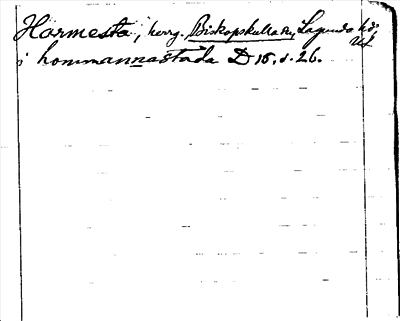 Härmesta, herrg. Biskopskulla sn, Lagunda hd, Upl.
i hommannastada D 16. s. 26.